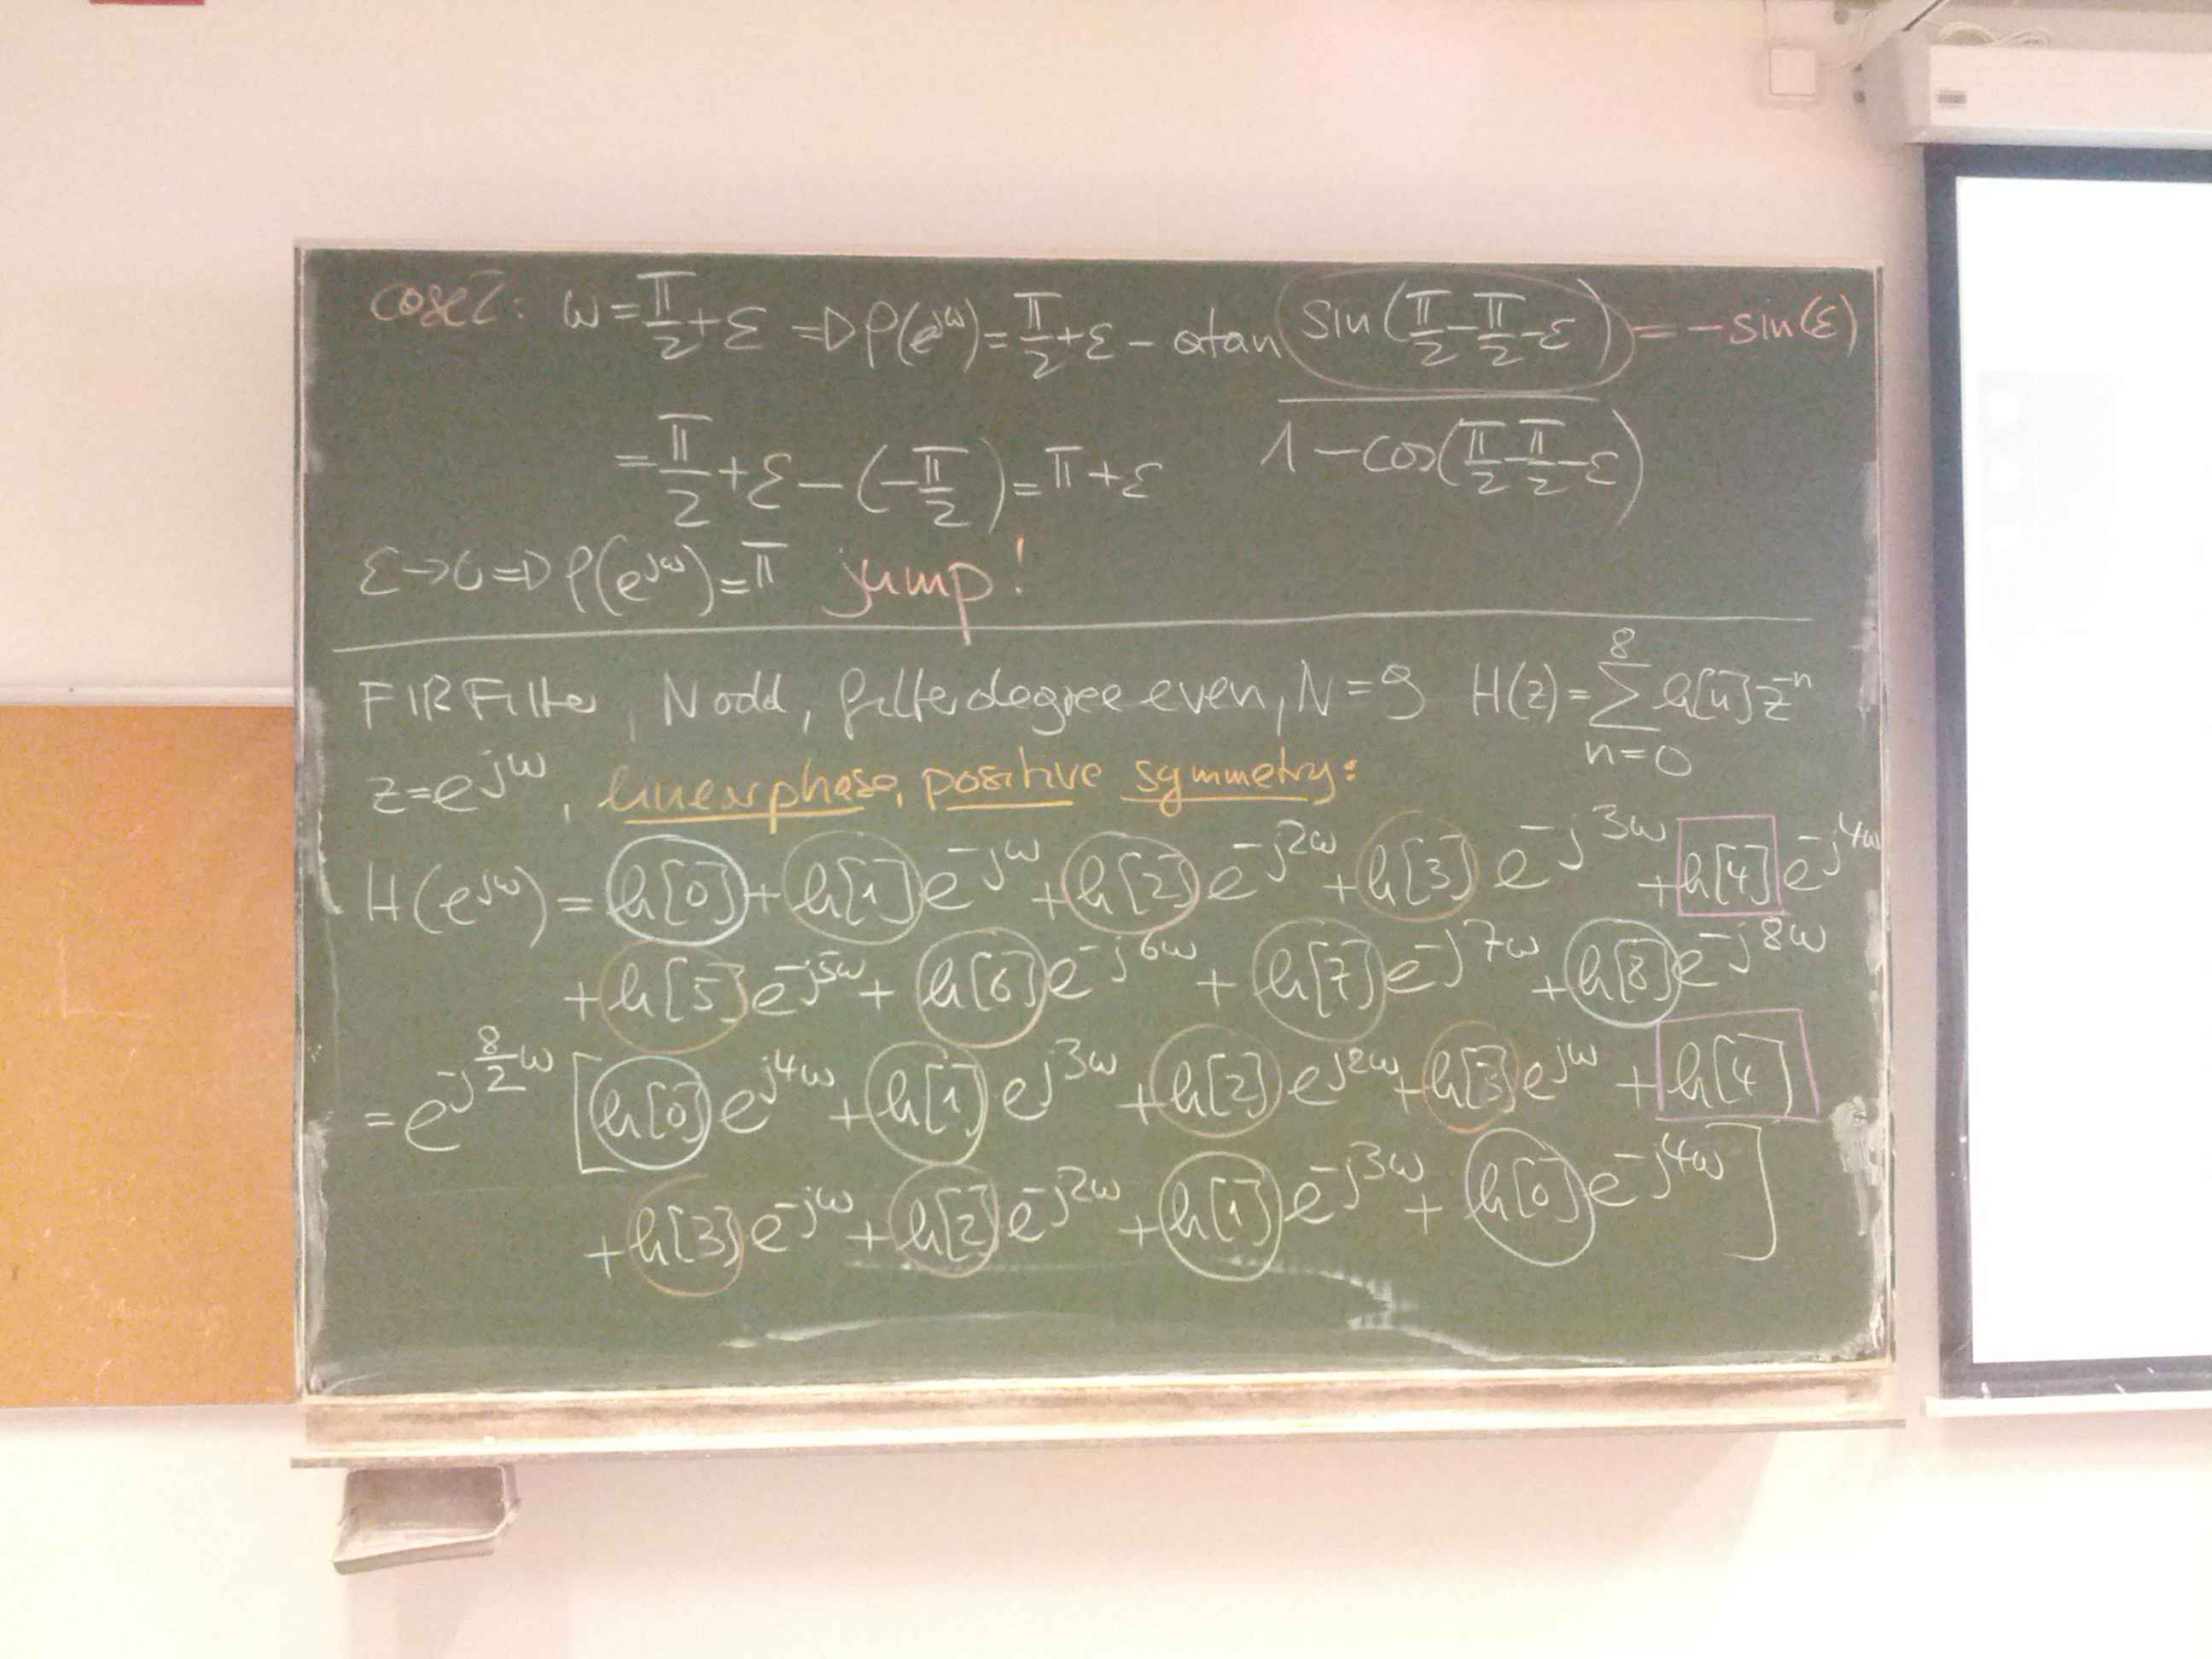 case2: ω = π/2 + ε => ρ(e^jω) = π/2 + ε - atan sin(π/2 - π/2 - ε) / 1 - cos(π/2 - π/2 - ε) = - sin(ε)
= π/2 + ε - (-π/2) = π + ε
ε → 0 => ρ(e^jω) = π jump!
FIR Filter, N odd, filterdegree even, N = 9 H(z) = Σ_{n=0}^{8} h[n] z^-n
z = e^jω, linearphase, positive symmetry:
H(e^jω) = h[0] + h[1] e^-jω + h[2] e^-j2ω + h[3] e^-j3ω + h[4] e^-j4ω
+ h[5] e^-j5ω + h[6] e^-j6ω + h[7] e^-j7ω + h[8] e^-j8ω
= e^-j8/2ω [ h[0] e^j4ω + h[1] e^j3ω + h[2] e^j2ω + h[3] e^jω + h[4]
+ h[3] e^-jω + h[2] e^-j2ω + h[1] e^-j3ω + h[0] e^-j4ω ]